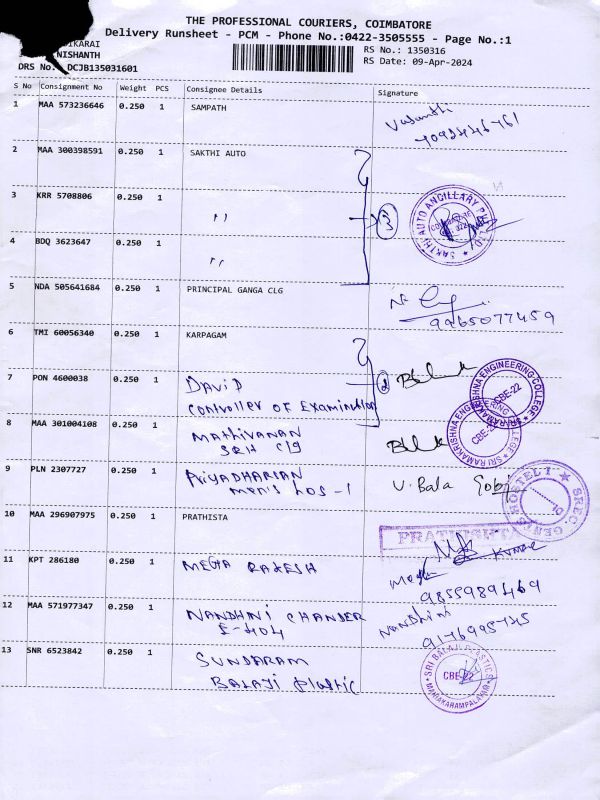 THE PROFESSIONAL COURIERS, COIMBATORE
Delivery Runsheet - PCM - Phone No.:0422-3505555 - Page No.:1
IKARAI
NISHANTH
DRS No.: DCJB135031601
RS No.: 1350316
RS Date: 09-Apr-2024
S No Consignment No Weight PCS Consignee Details Signature
1 MAA 573236646 0.250 1 SAMPATH Vasanthi
2 MAA 300398591 0.250 1 SAKTHI AUTO
3 KRR 5708806 0.250 1 " 3
SAKTHI AUTO ANCILLARY
4 BDQ 3623647 0.250 1 "
5 NDA 505641684 0.250 1 PRINCIPAL GANGA CLG
9965077459
6 TMI 60056340 0.250 1 KARPAGAM
7 PON 4600038 0.250 1 DAVID 2
Controller of Examination
SRI RAMAKRISHNA ENGINEERING COLLEGE
CBE-22
8 MAA 301004108 0.250 1 MATHIVANAN
SRH Clg
SRI RAMAKRISHNA ENGINEERING COLLEGE
CBE-22
9 PLN 2307727 0.250 1 PRIYADHARSAN V. Bala Gobi
men's hos-1
SREC GENTS HOSTEL 1
10 MAA 296907975 0.250 1 PRATHISTA
11 KPT 286180 0.250 1 MEGA RAKESH
9855989469
12 MAA 571977347 0.250 1 NANDHINI CHANDER Nandhini
E-404
13 SNR 6523842 0.250 1 SUNDARAM
BALAJI plastic
SRI BALAJI PLASTICS
CBE-22
MANIAKARAMPALAYAM